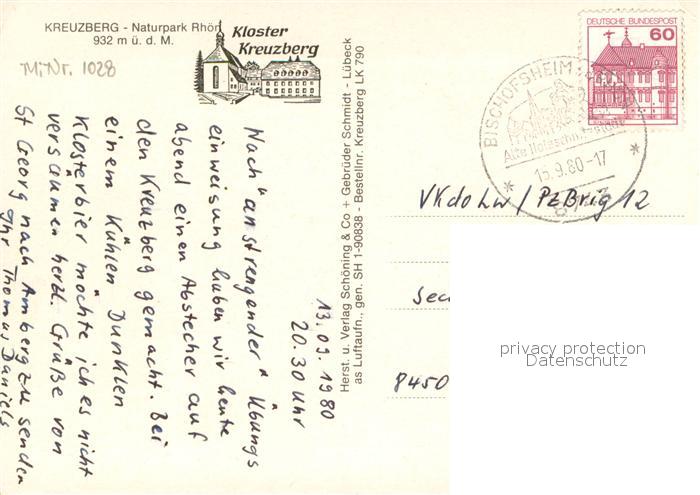 KREUZBERG - Naturpark Rhön
932 m ü. d. M.
MiNr. 1028
Kloster
Kreuzberg
13.09.1980
20.30 Uhr
Nach "anstrengender" Übungs
einweisung haben wir heute
abend einen Abstecher auf
den Kreuzberg gemacht. Bei
einem Kühlen Dunklen
Klosterbier möchte ich es nicht
versäumen herzl. Grüße von
St Georg nach Amberg zu senden
Ihr Thomas Daniels
Herst. u. Verlag Schöning & Co + Gebrüder Schmidt - Lübeck
as Luftaufn., gen. SH 1-90838 - Bestellnr. Kreuzberg LK 790
DEUTSCHE BUNDESPOST
60
BISCHOFSHEIM
Alte Holzschnitzstadt
15.9.80-17
VKdoLw/PzBrig 12
8450
privacy protection
Datenschutz